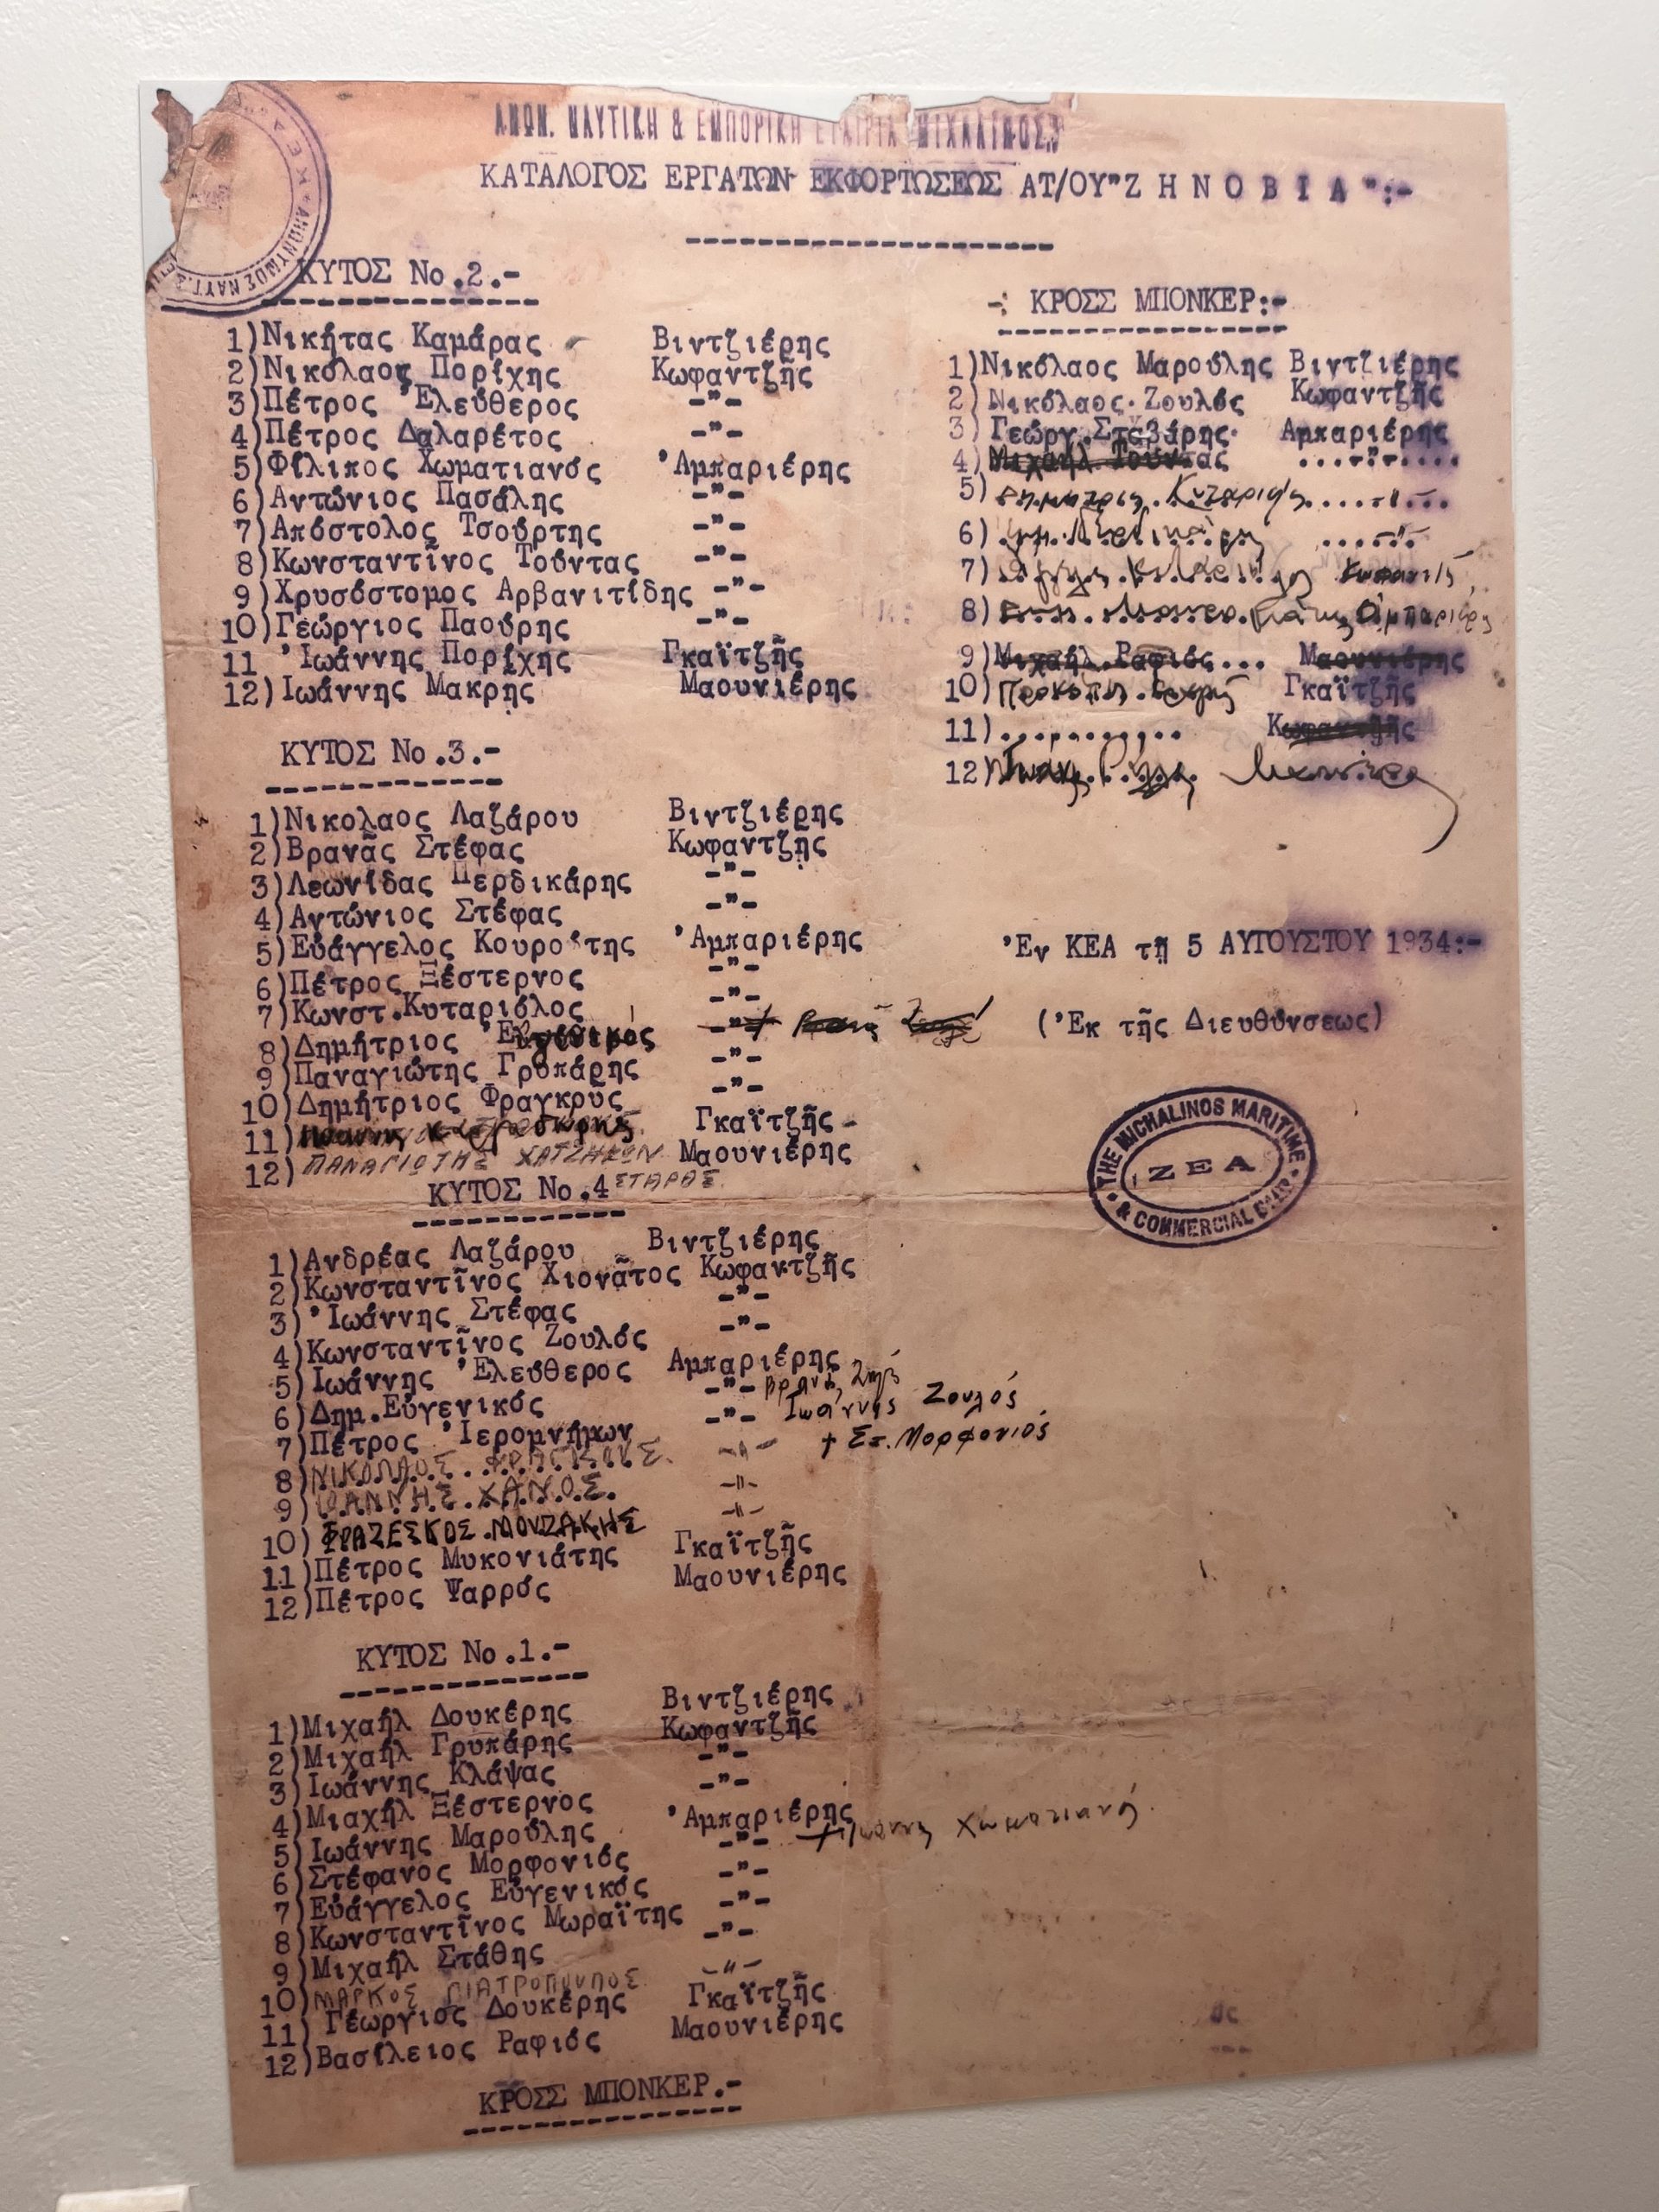 ΑΝΩΝ. ΝΑΥΤΙΚΗ & ΕΜΠΟΡΙΚΗ ΕΤΑΙΡΙΑ ΜΙΧΑΛΙΝΟΣ
ΚΑΤΑΛΟΓΟΣ ΕΡΓΑΤΩΝ ΕΚΦΟΡΤΩΣΕΩΣ ΑΤ/ΟΥ"Ζ Η Ν Ο Β Ι Α":-
ΑΝΩΝΥΜΟΣ ΝΑΥΤ.
ΚΥΤΟΣ Νο.2.-
1)Νικήτας Καμάρας Βιντζιέρης
2)Νικόλαος Πορίχης Κωφαντζῆς
3)Πέτρος 'Ελεύθερος -"-
4)Πέτρος Δαλαρέτος -"-
5)Φίλιπος Χωματιανός 'Αμπαριέρης
6)Αντώνιος Πασάλης -"-
7)Απόστολος Τσούρτης -"-
8)Κωνσταντῖνος Τούντας -"-
9)Χρυσόστομος Αρβανιτίδης -"-
10)Γεώργιος Παούρης -"-
11 'Ιωάννης Πορίχης Γκαϊτζῆς
12)Ιωάννης Μακρης Μαουνιέρης
ΚΥΤΟΣ Νο.3.-
1)Νικολαος Λαζάρου Βιντζιέρης
2)Βρανᾶς Στέφας Κωφαντζῆς
3)Λεωνίδας Περδικάρης -"-
4)Αντώνιος Στέφας -"-
5)Εύάγγελος Κουρο΄της 'Αμπαριέρης
6)Πέτρος Ξέστερνος -"-
7)Κωνστ.Κυταριόλος -"-
8)Δημήτριος -"-
9)Παναγιώτης Γρυπάρης -"-
10)Δημήτριος Φραγκούς -"-
11) Γκαϊτζῆς-
12)ΠΑΝΑΓΙΩΤΗΣ ΧΑΤΖΗΚΩΝ Μαουνιέρης
ΣΤΑΡΑΣ
ΚΥΤΟΣ Νο.4
1)Ανδρέας Λαζάρου Βιντζιέρης
2)Κωνσταντῖνος Χιονᾶτος Κωφαντζῆς
3)'Ιωάννης Στέφας -"-
4)Κωνσταντῖνος Ζουλός -"-
5)Ιωάννης 'Ελεύθερος Αμπαριέρης
6)Δημ.Εύγενικός -"-
7)Πέτρος 'Ιερομνήμων -"- Ιωάννης Ζουλός
8)ΝΙΚΟΛΑΟΣ -"- + Στ. Μορφονιός
9)ΙΩΑΝΝΗΣ ΧΑΝΟΣ. -"-
10)ΦΡΑΖΕΣΚΟΣ ΜΟΥΖΑΚΗΣ -"-
11)Πέτρος Μυκονιάτης Γκαϊτζῆς
12)Πέτρος Ψαρρός Μαουνιέρης
ΚΥΤΟΣ Νο.1.-
1)Μιχαήλ Δουκέρης Βιντζιέρης
2)Μιχαήλ Γρυπάρης Κωφαντζῆς
3)Ιωάννης Κλάψας -"-
4)Μιαχήλ Ξέστερνος -"-
5)Ιωάννης Μαρούλης 'Αμπαριέρης
6)Στέφανος Μορφονιός -"- + Ιωάννης Χωματιανός.
7)Εύάγγελος Εύγενικός -"-
8)Κωνσταντῖνος Μωραϊτης -"-
9)Μιχαήλ Στάθης -"-
10)ΜΑΡΚΟΣ ΓΙΑΤΡΟΠΟΥΛΟΣ -"-
11) Γέωργιος Δουκέρης Γκαϊτζῆς
12)Βασίλειος Ραφιός Μαουνιέρης
ΚΡΟΣΣ ΜΠΟΝΚΕΡ.-
-: ΚΡΟΣΣ ΜΠΟΝΚΕΡ:-
1)Νικόλαος Μαρούλης Βιντζιέρης
2)Νικόλαος.Ζουλός Κωφαντζῆς
3)Γεώργ.Στ Αμπαριέρης
4)Μιχαήλ Τούντας ....-"-....
5) -"-
6) -"-
7)
8) Αμπαριέρης
9)Μιχαήλ.Ραφιός... Μαουνιέρης
10) Γκαϊτζῆς
11)........... Κωφαντζῆς
12)
'Εν ΚΕΑ τῇ 5 ΑΥΓΟΥΣΤΟΥ 1934:-
('Εκ τῆς Διευθύνσεως)
THE MICHALINOS MARITIME
ZEA
& COMMERCIAL
ός